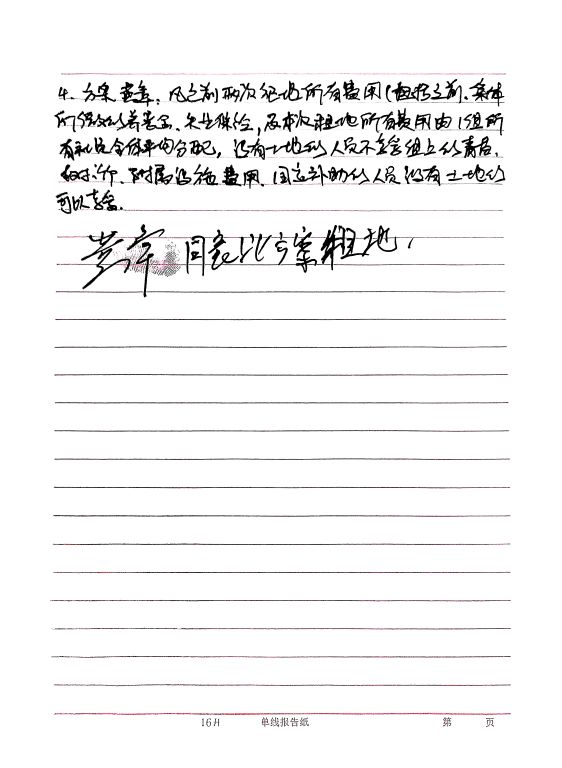 4、方案壹：凡之前两次征地所有费用(包括之前、集体
所缴的养老金、失业保险，及本次租地所有费用由1组所
有社员全体平均分配，没有土地的人员不享受组上的青苗、
附属设施费用、国家补助的人员没有土地的
可以享受。
同意此方案租地，
16开 单线报告纸 第 页